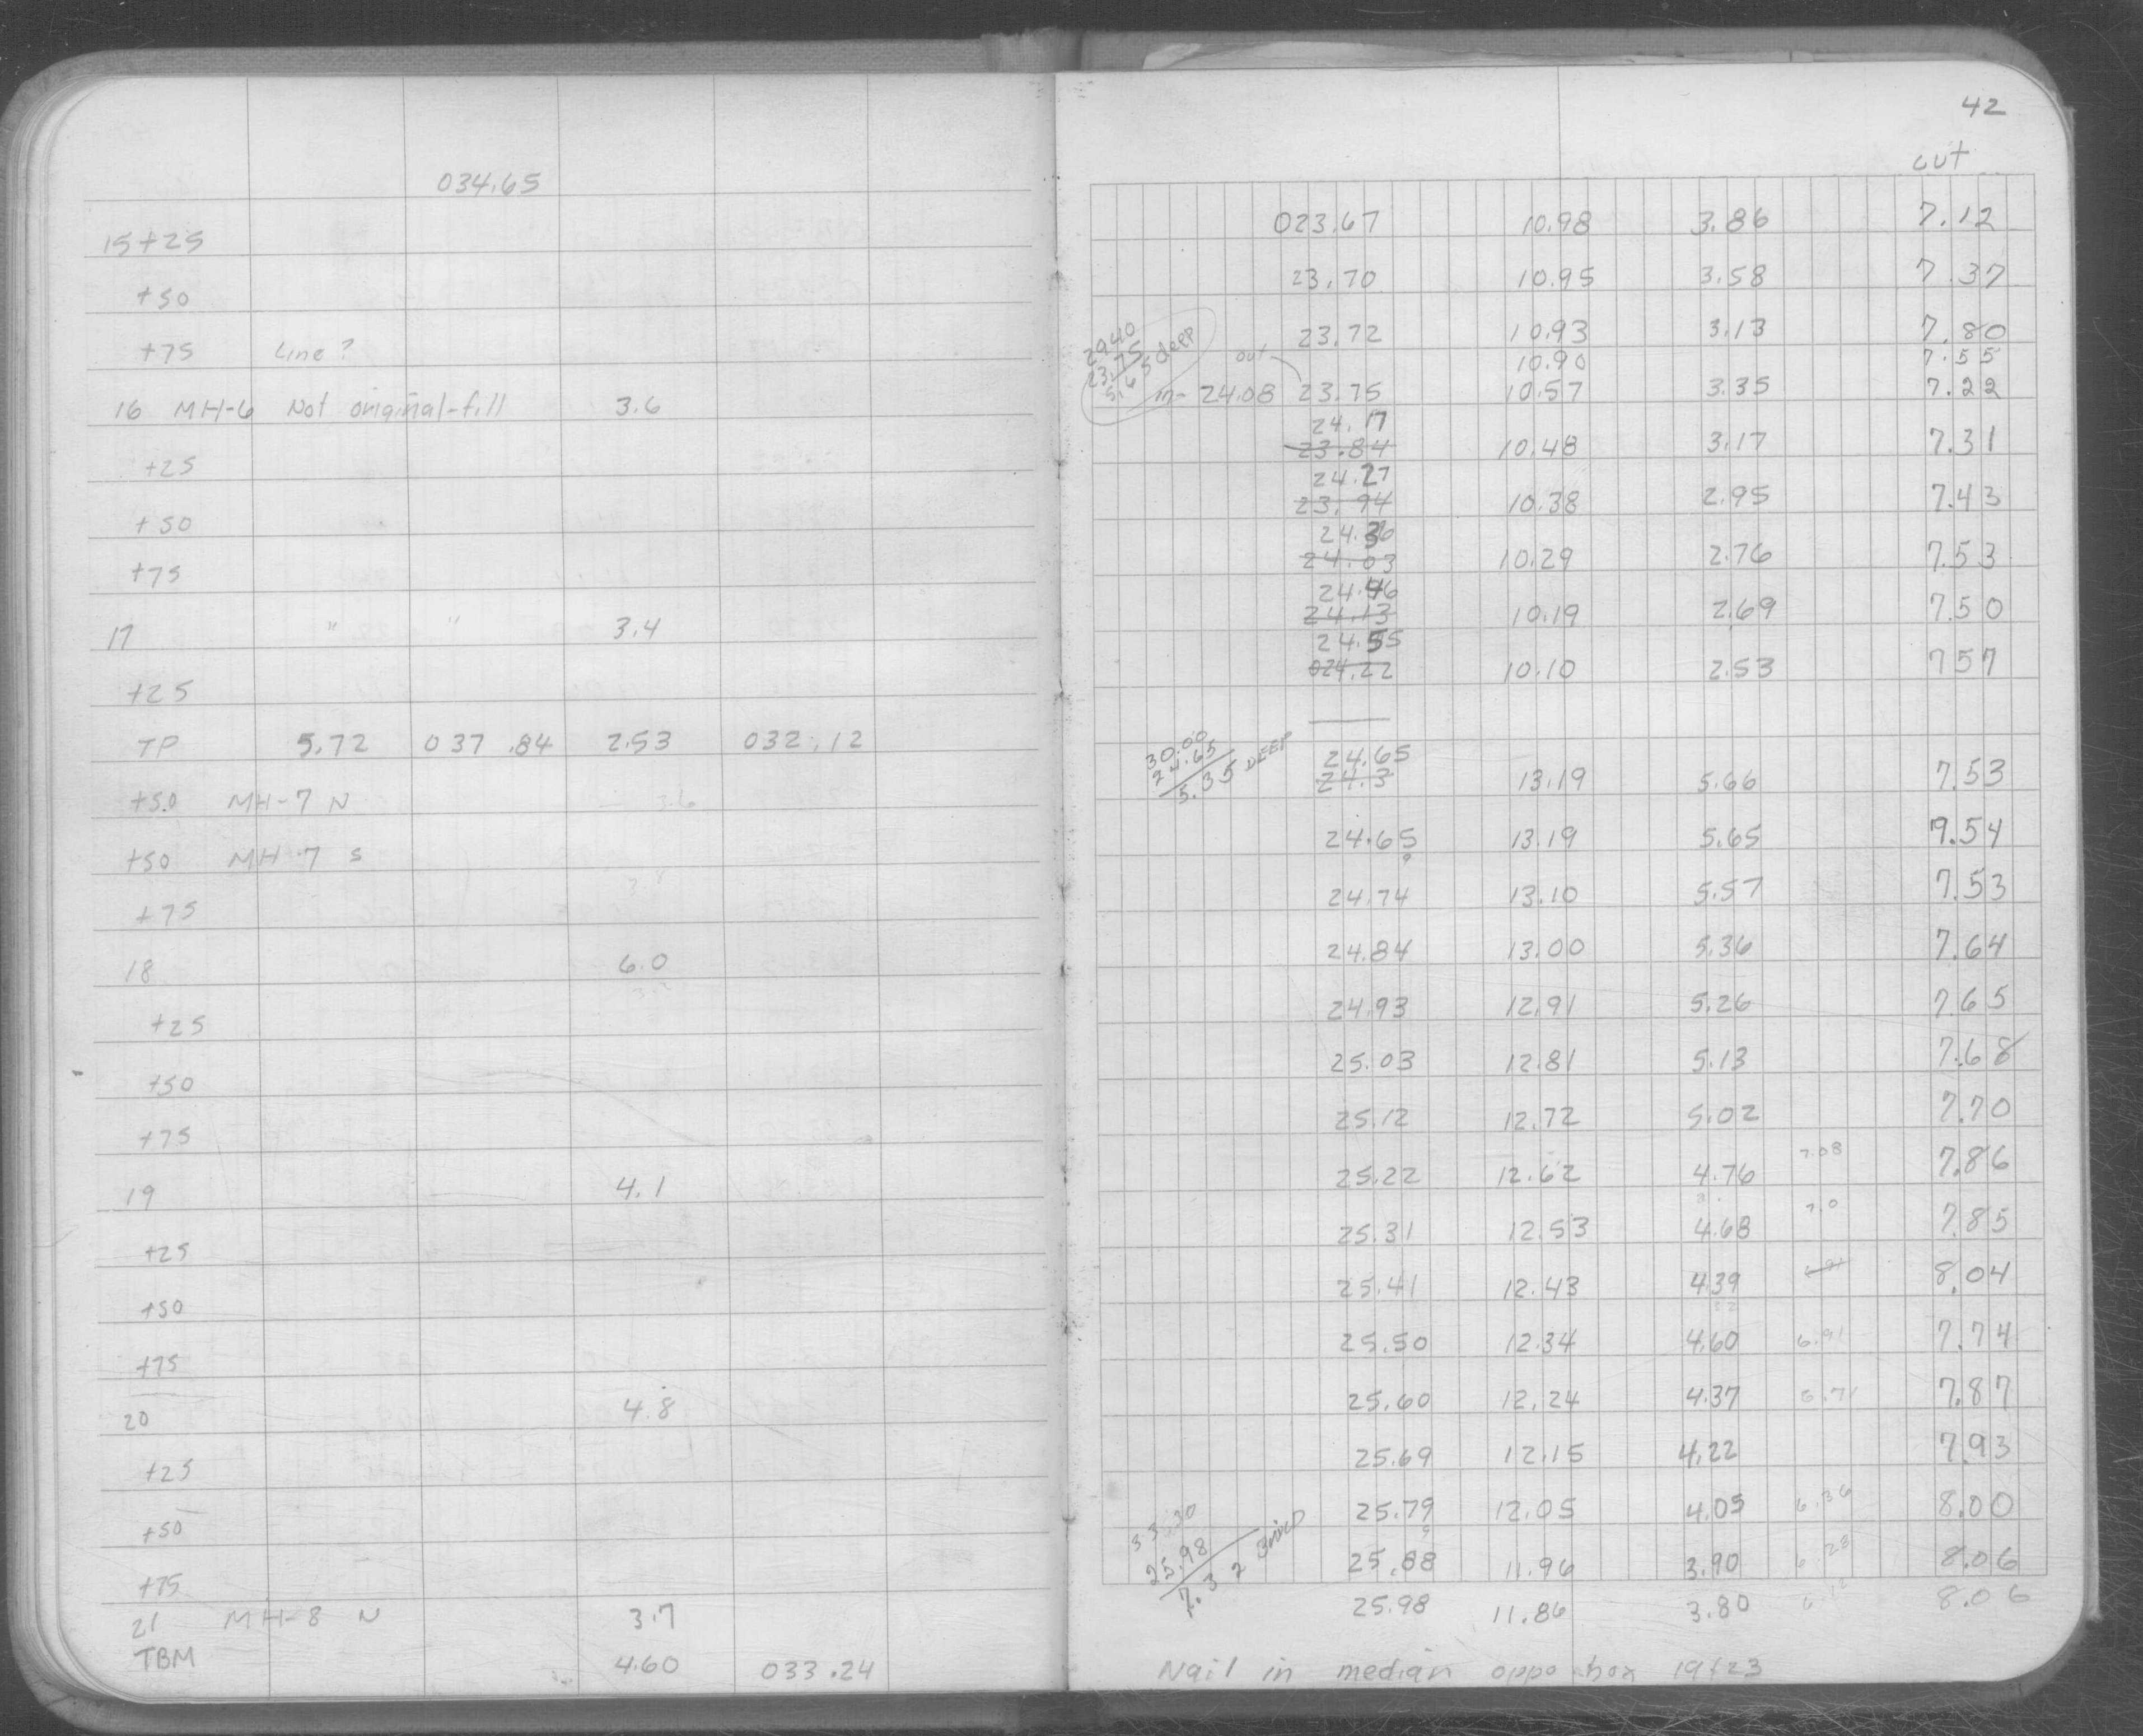 42
cut
034.65
15+25 023.67 10.98 3.86 7.12
+50 23.70 10.95 3.58 7.37
+75 Line? 23.72 10.93 3.13 7.80
10.90 7.55
29.40
23.75
5.65 deep
out
16 MH-6 Not original-fill 3.6 in- 24.08 23.75 10.57 3.35 7.22
24.17
+25 23.84 10.48 3.17 7.31
24.27
+50 23.94 10.38 2.95 7.43
24.36
+75 24.03 10.29 2.76 7.53
24.46
17 " " 3.4 24.13 10.19 2.69 7.50
24.55
+25 024.22 10.10 2.53 7.57
TP 5.72 037.84 2.53 032.12
30.00
24.65
5.35 DEEP
24.65
+50 MH-7 N 3.6 24.3 13.19 5.66 7.53
+50 MH-7 S 24.65 13.19 5.65 7.54
+75 24.74 13.10 5.57 7.53
18 6.0 24.84 13.00 5.36 7.64
+25 24.93 12.91 5.26 7.65
+50 25.03 12.81 5.13 7.68
+75 25.12 12.72 5.02 7.70
19 4.1 25.22 12.62 4.76 7.08 7.86
+25 25.31 12.53 4.68 7.0 7.85
+50 25.41 12.43 4.39 8.04
+75 25.50 12.34 4.60 6.91 7.74
20 4.8 25.60 12.24 4.37 6.71 7.87
+25 25.69 12.15 4.22 7.93
+50 25.79 12.05 4.05 6.36 8.00
+75 25.88 11.96 3.90 6.28 8.06
33.30
25.98
7.32
21 MH-8 N 3.7 25.98 11.86 3.80 8.06
TBM 4.60 033.24 Nail in median oppo box 19+23